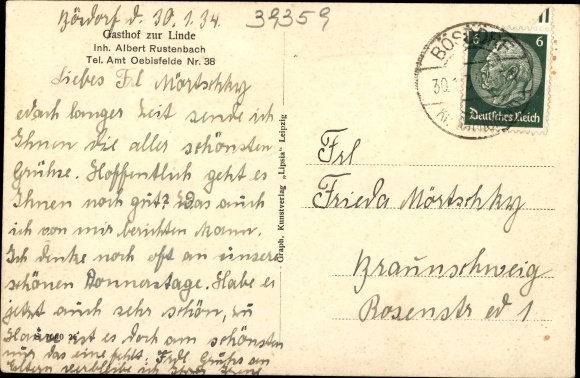 Bösdorf d. 30.1.34.
39359
Gasthof zur Linde
Inh. Albert Rustenbach
Tel. Amt Oebisfelde Nr. 38
Liebes Frl Mörtschky
nach langer Zeit sende ich
Ihnen die aller schönsten
Grühse. Hoffentlich geht es
Ihnen noch gut? Was auch
ich von mir berichten kann.
Ich denke noch oft an unsere
schönen Donnerstage. Habe es
jetzt auch sehr schön, zu
Hause ist es doch am schönsten
nur das eine fehlt. Frdl. Grühs an
Eltern verbleibe ich Ihre
Graph. Kunstverlag „Lipsia" Leipzig
BÖSDORF
30.1
6
Deutsches Reich
Frl
Frieda Mörtschky
Braunschweig
Rosenstr 1